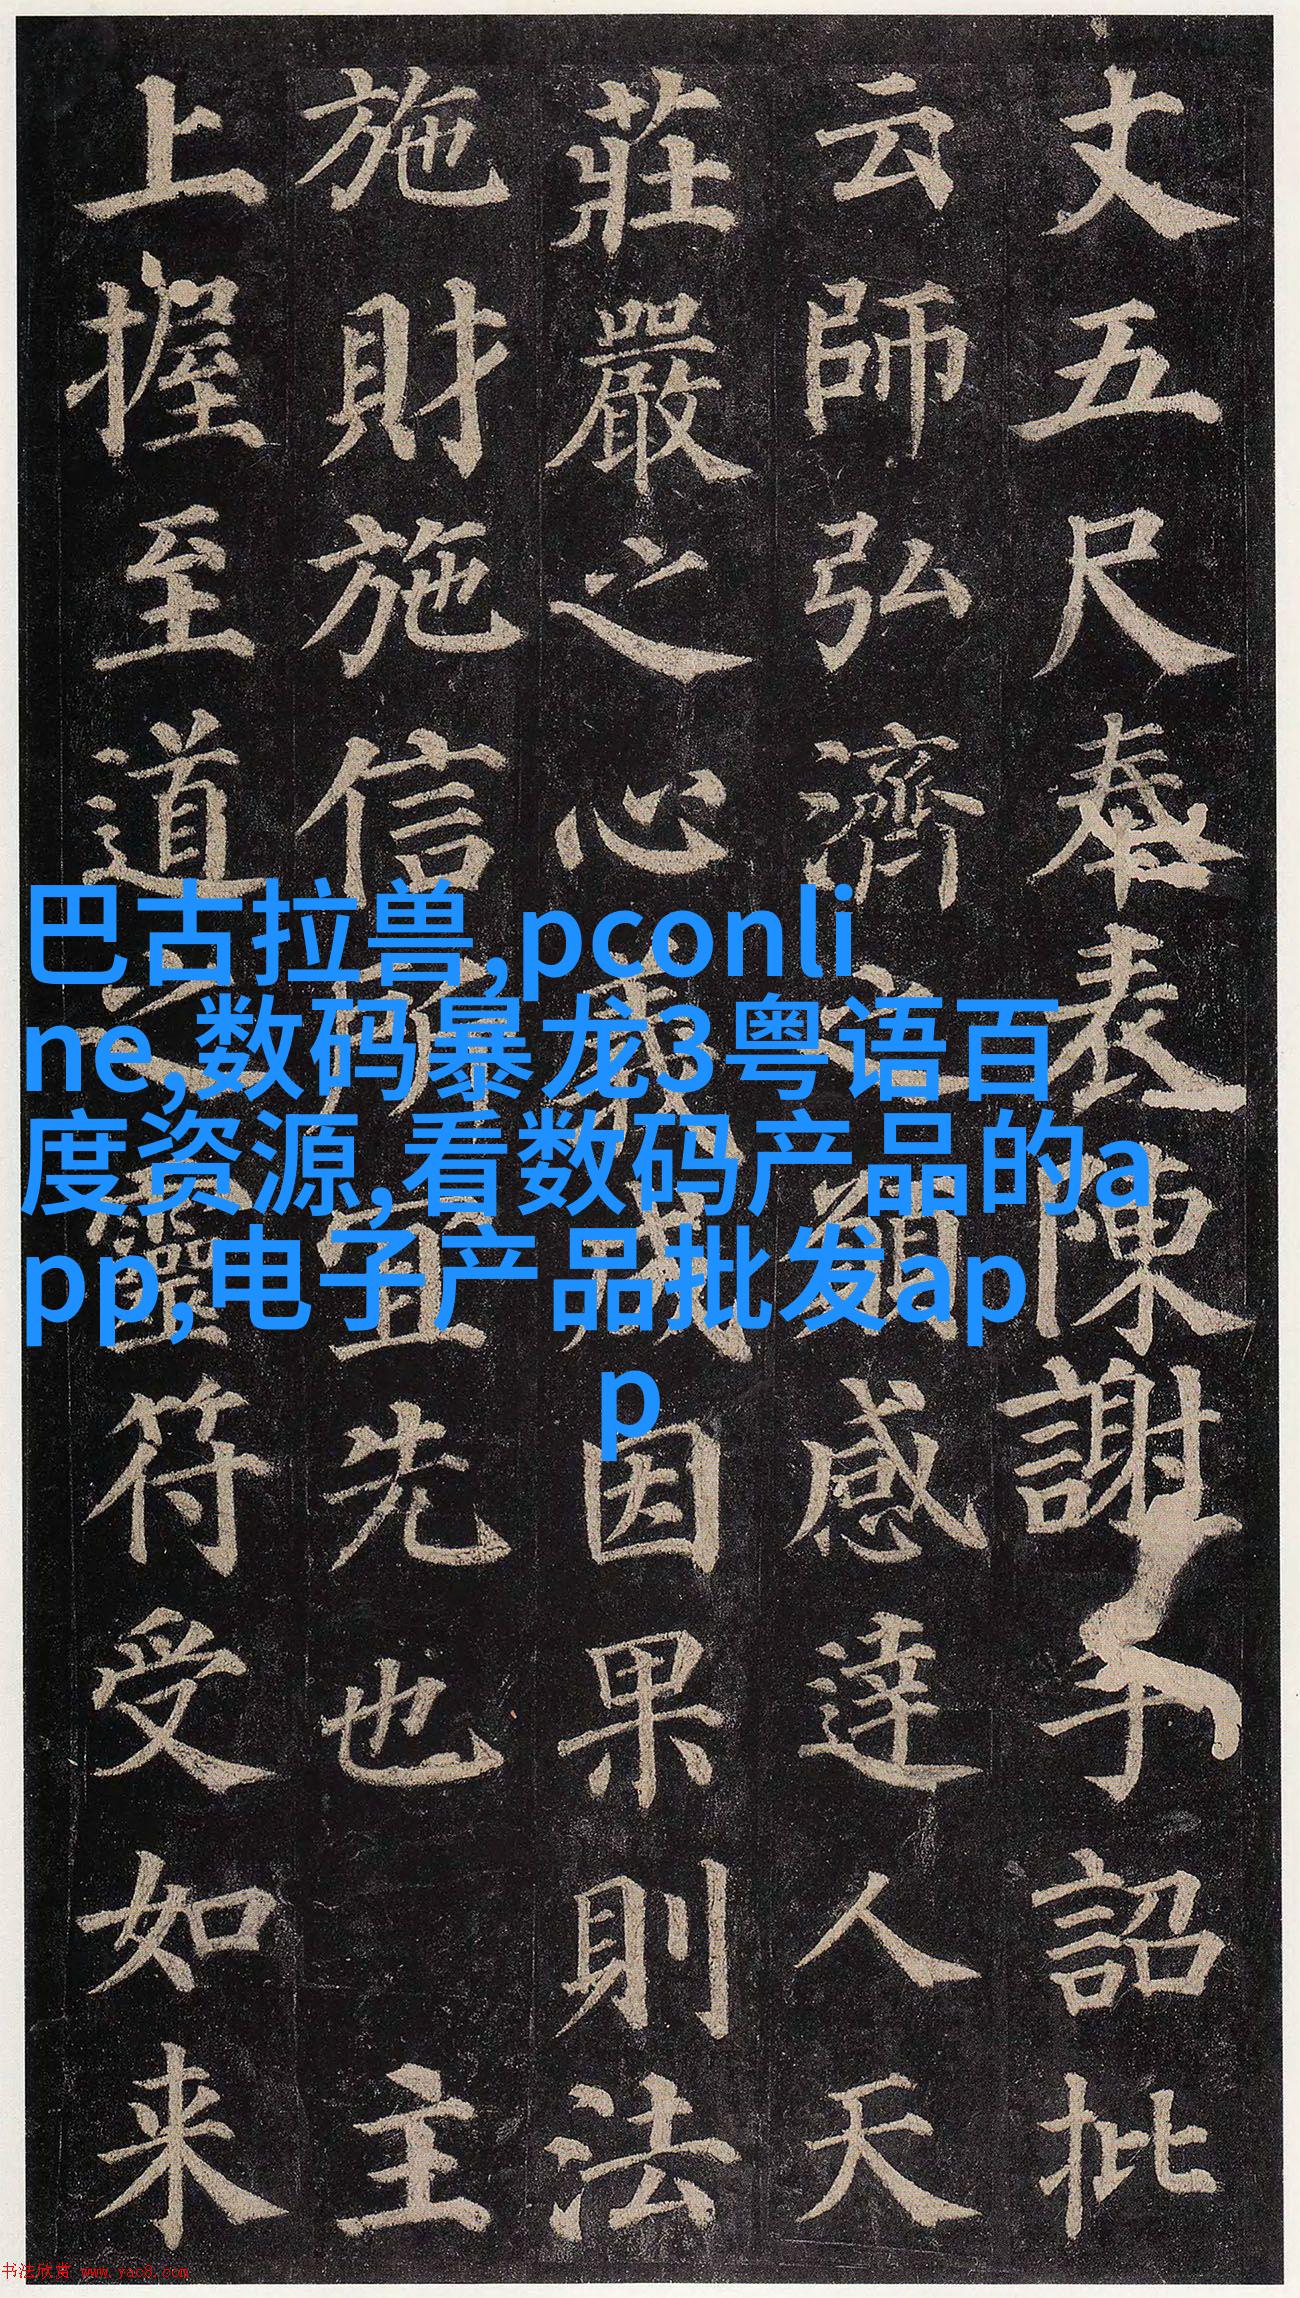 丈五尺奉表陳謝手詔批
云師弘濟之願感達人天
莊嚴之心義成因果則法
施財施信所宜先也主
上握至道之靈符受如来
巴古拉兽,pconli
ne,数码暴龙3粤语百
度资源,看数码产品的a
pp,电子产品批发ap
p
书法欣赏 www.yac8.com